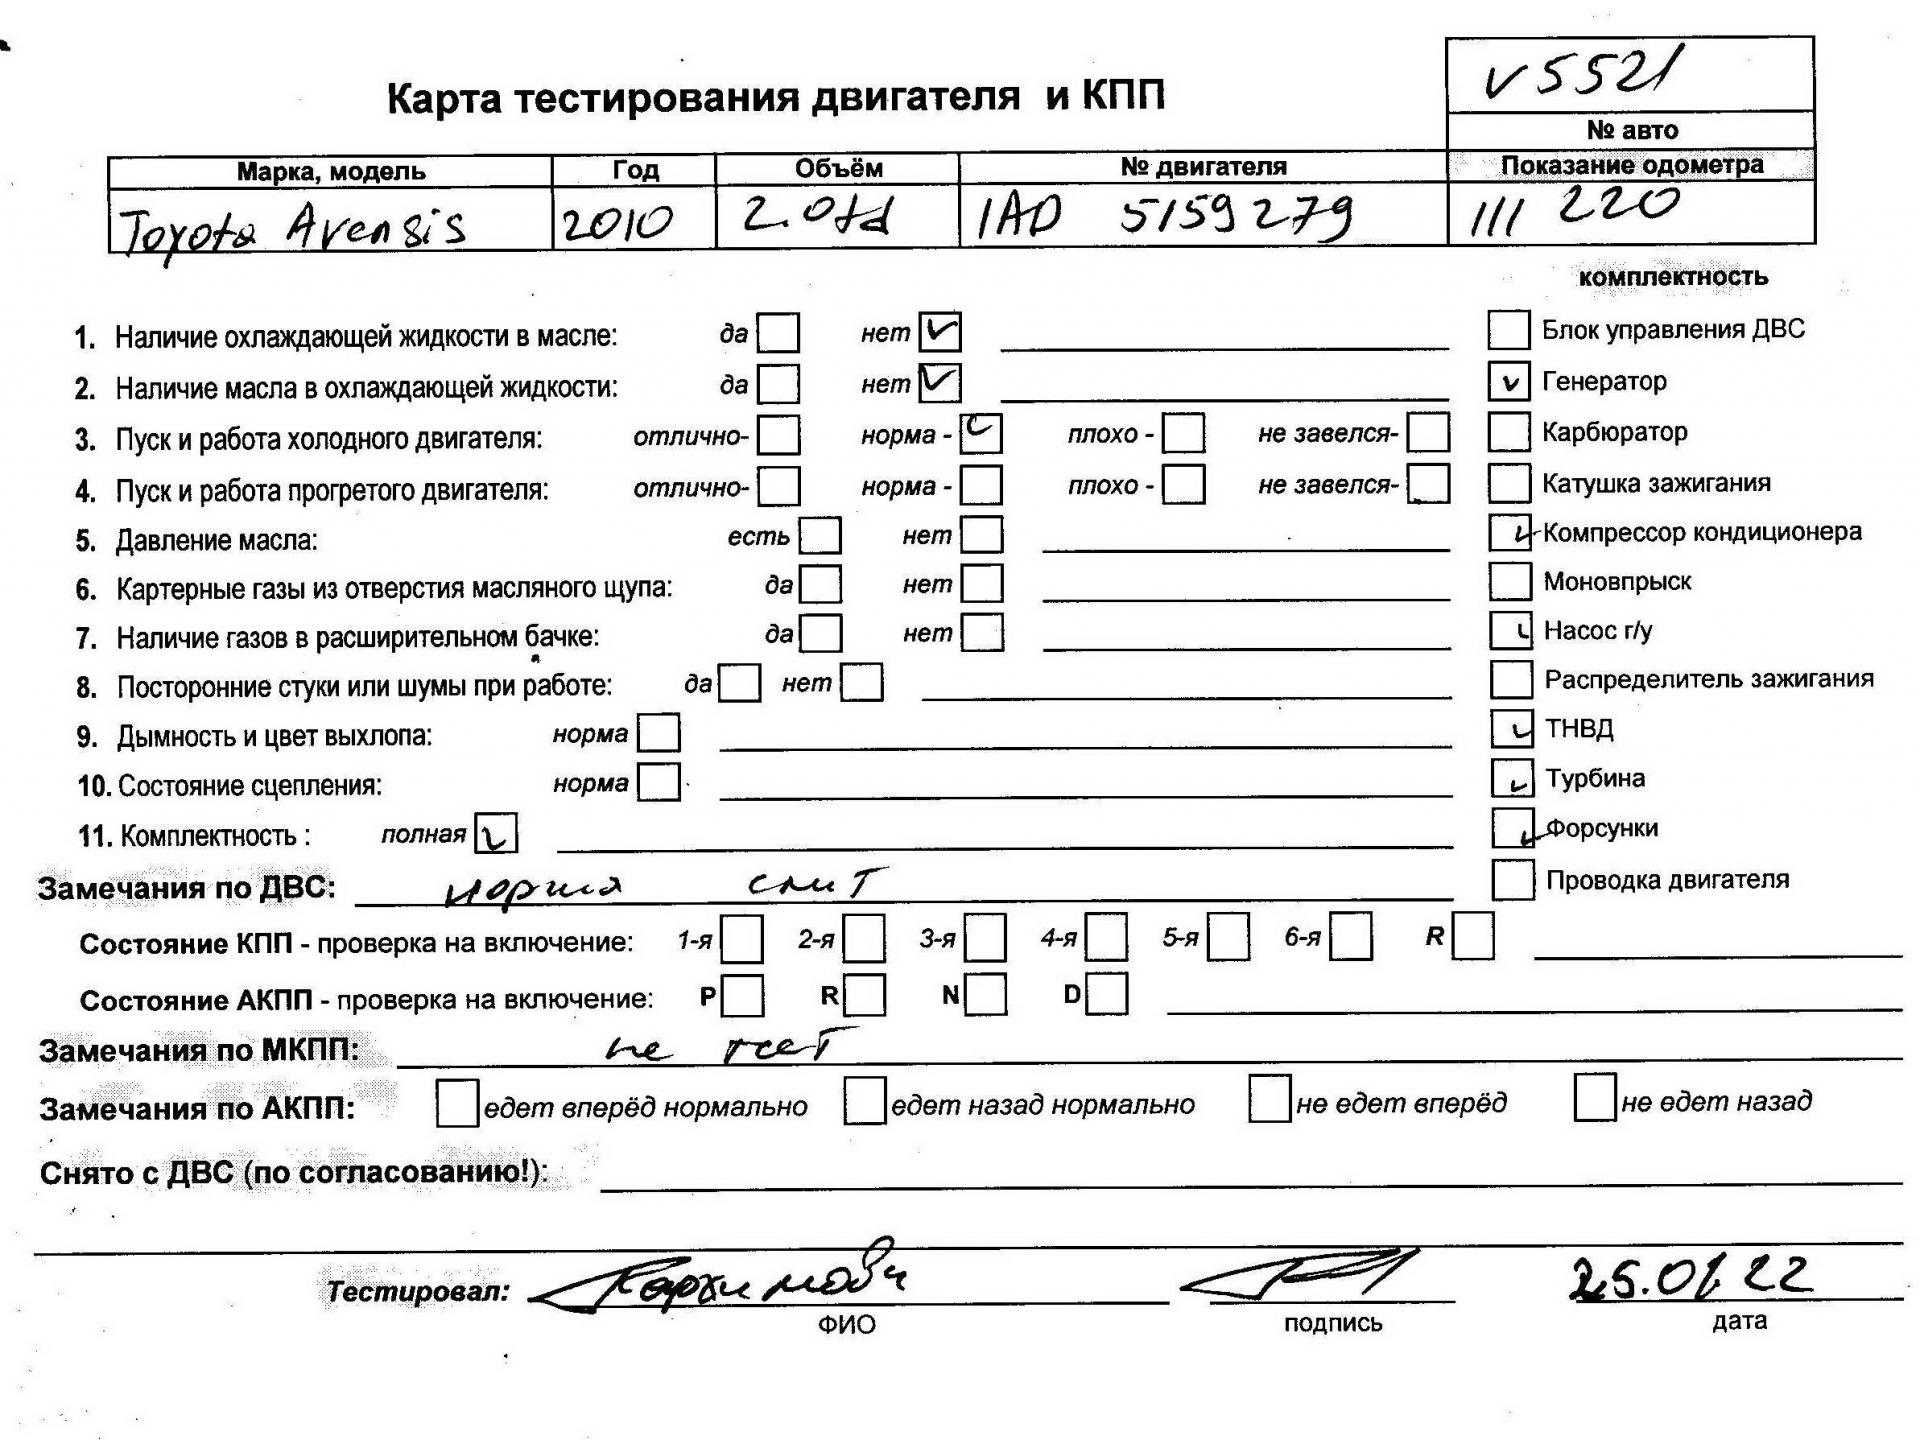 V5521
Карта тестирования двигателя и КПП
№ авто
Марка, модель Год Объём № двигателя Показание одометра
Toyota Avensis 2010 2.0td 1AD 5159279 111 220
комплектность
1. Наличие охлаждающей жидкости в масле: да нет Блок управления ДВС
2. Наличие масла в охлаждающей жидкости: да нет Генератор
3. Пуск и работа холодного двигателя: отлично- норма - плохо - не завелся- Карбюратор
4. Пуск и работа прогретого двигателя: отлично- норма - плохо - не завелся- Катушка зажигания
5. Давление масла: есть нет Компрессор кондиционера
6. Картерные газы из отверстия масляного щупа: да нет Моновпрыск
7. Наличие газов в расширительном бачке: да нет Насос г/у
8. Посторонние стуки или шумы при работе: да нет Распределитель зажигания
9. Дымность и цвет выхлопа: норма ТНВД
10. Состояние сцепления: норма Турбина
11. Комплектность : полная Форсунки
Замечания по ДВС: норма Проводка двигателя
Состояние КПП - проверка на включение: 1-я 2-я 3-я 4-я 5-я 6-я R
Состояние АКПП - проверка на включение: P R N D
Замечания по МКПП: не
Замечания по АКПП: едет вперёд нормально едет назад нормально не едет вперёд не едет назад
Снято с ДВС (по согласованию!):
Тестировал: 25.01.22
ФИО подпись дата